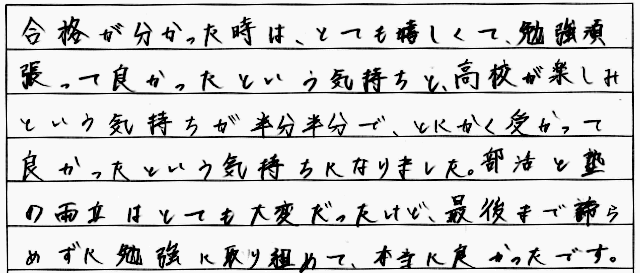 合格が分かった時は、とても嬉しくて、勉強頑
張って良かったという気持ちと、高校が楽しみ
という気持ちが半分半分で、とにかく受かって
良かったという気持ちになりました。部活と塾
の両立はとても大変だったけど、最後まで諦ら
めずに勉強に取り組めて、本当に良かったです。